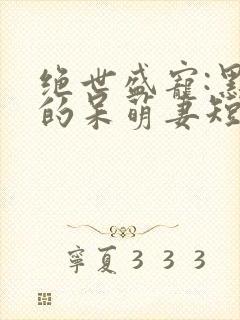 绝世盛宠:
的呆萌妻短
寧夏333